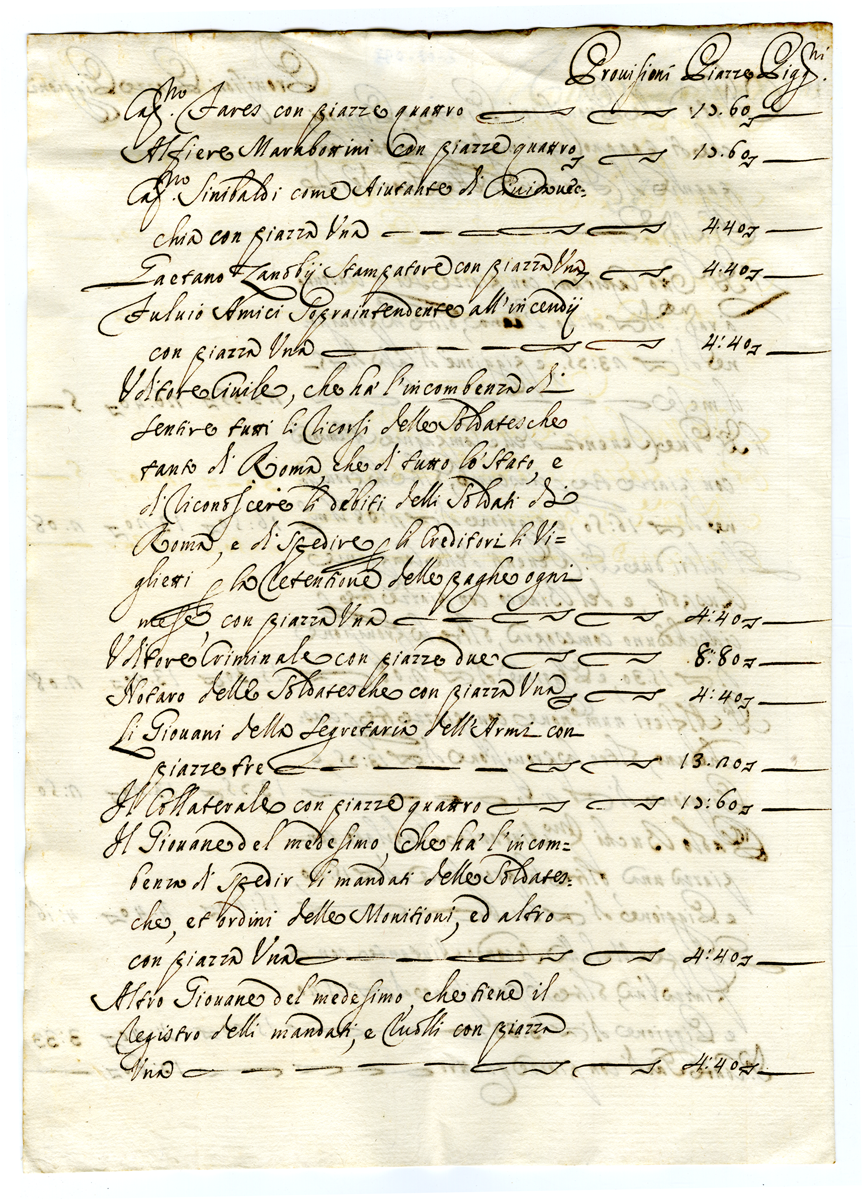 Prouisioni Piazze Pigg.ni
Cap.no Fares con piazze quattro 13.60
Alfiere Marabottini con piazze quattro 13.60
Cap.no Sinibaldi come Aiutante di Ciuitauec=
chia con piazza Vna 4:40
Gaetano Zanobij Stampatore con piazza Vna 4:40
Fuluio Amici Sopraintendente all'incendij
con piazza Vna 4:40
Vditore Ciuile, che hà l'incombenza di
sentire tutti li Ricorsi delle Soldatesche
tanto di Roma, che di tutto lo Stato, e
di riconoscere li debiti delli Soldati di
Roma, e di spedire p li Creditori li Vi=
glietti p la Retentione delle paghe ogni
mese, con piazza Vna 4:40
Vditore Criminale con piazze due 8:80
Notaro delle Soldatesche con piazza Vna 4:40
Li Giouani della Segretaria dell'Armi con
piazze tre 13:20
Il Collaterale con piazze quattro 13:60
Il Giouane del medesimo, che hà l'incom=
benza di spedir li mandati delle Soldates=
che, et ordini delle Monitioni, ed altro
con piazza Vna 4:40
Altro Giouane del medesimo, che tiene il
Registro delli mandati, e Ruolli con piazza
Vna 4:40